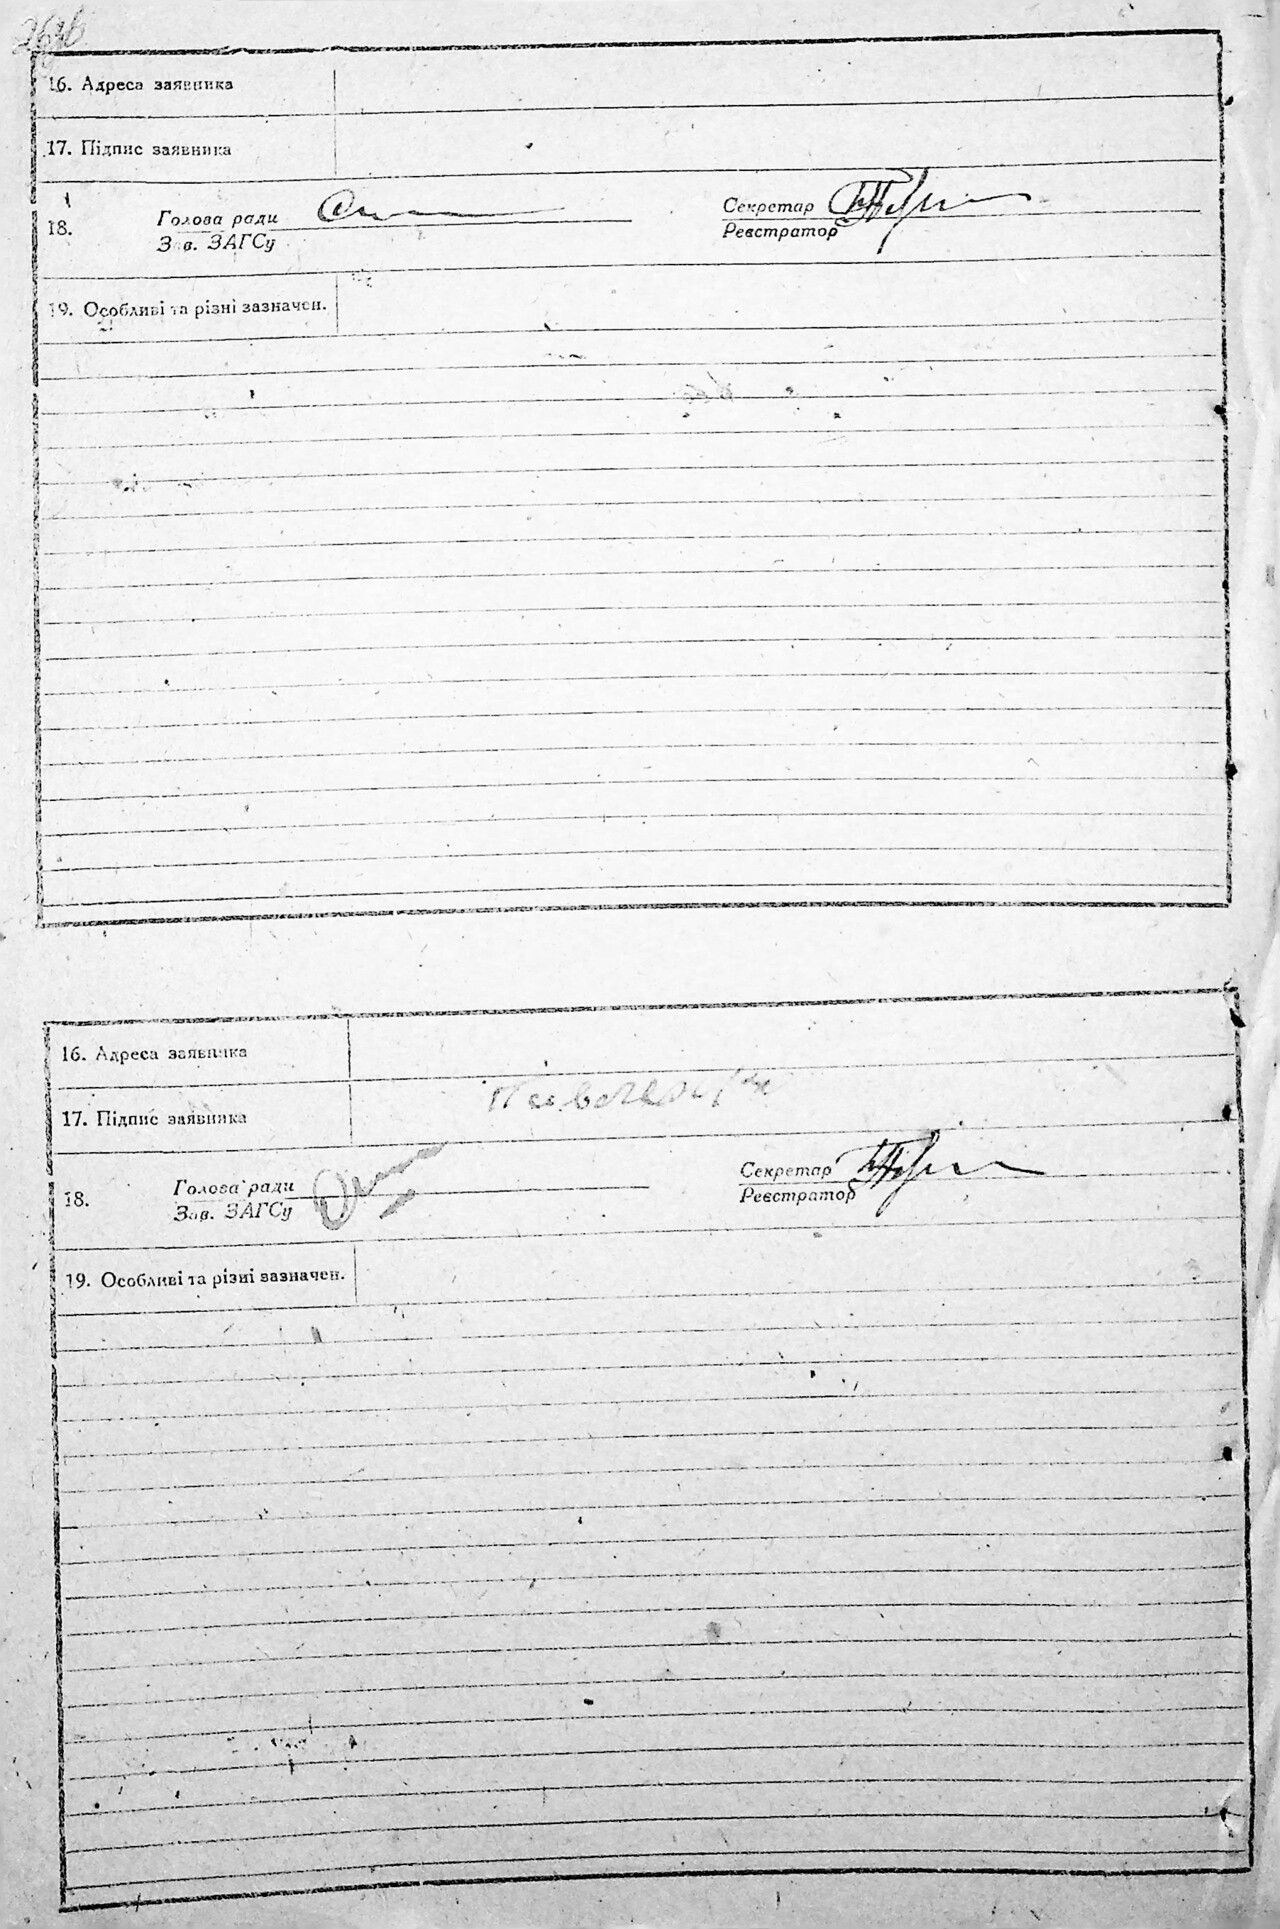 16. Адреса заявника
17. Підпис заявника
18.
Голова ради
Зав. ЗАГСу
Секретар
Реєстратор
19. Особливі та різні зазначен.
16. Адреса заявника
17. Підпис заявника
18.
Голова ради
Зав. ЗАГСу
Секретар
Реєстратор
19. Особливі та різні зазначен.